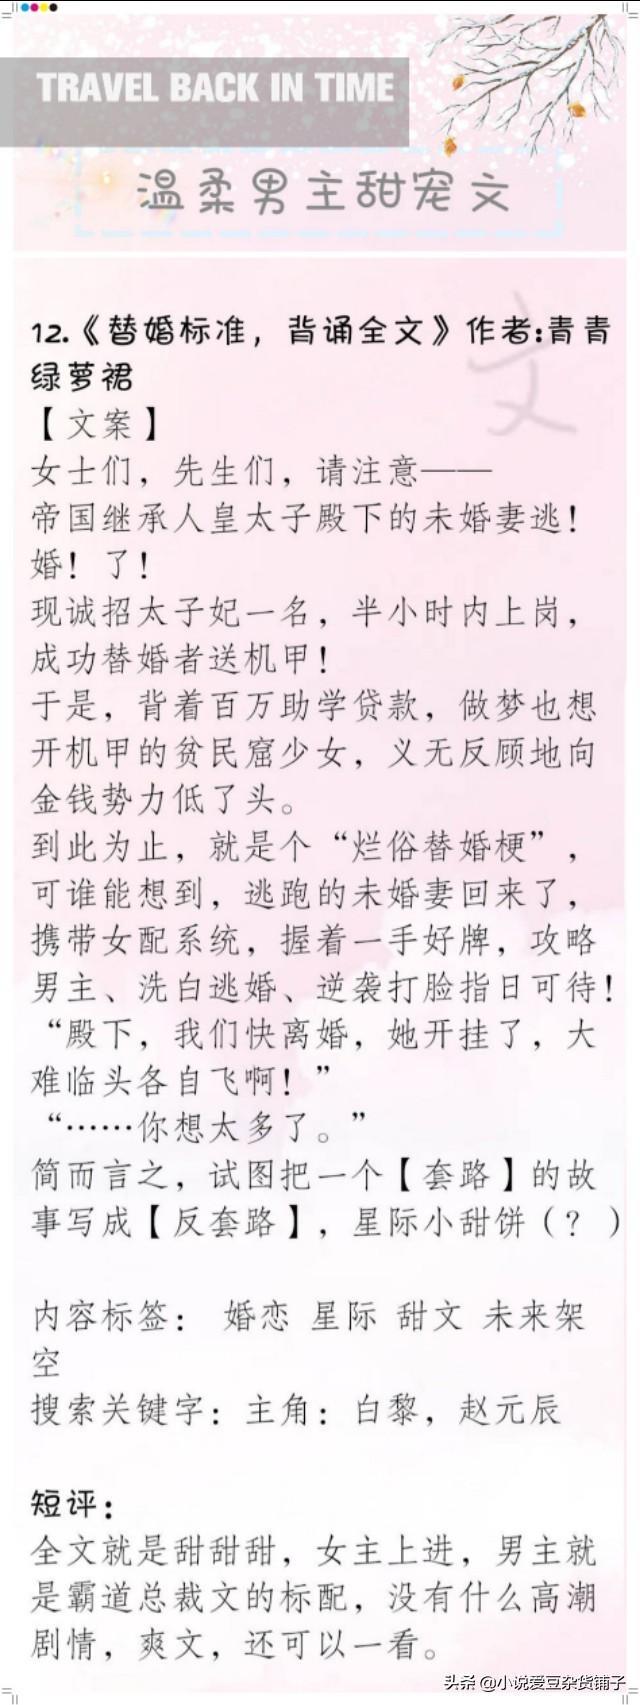 TRAVEL BACK IN TIME
温柔男主甜宠文
文
12.《替婚标准，背诵全文》作者:青青
绿萝裙
【文案】
女士们，先生们，请注意——
帝国继承人皇太子殿下的未婚妻逃！
婚！了！
现诚招太子妃一名，半小时内上岗，
成功替婚者送机甲！
于是，背着百万助学贷款，做梦也想
开机甲的贫民窟少女，义无反顾地向
金钱势力低了头。
到此为止，就是个“烂俗替婚梗”，
可谁能想到，逃跑的未婚妻回来了，
携带女配系统，握着一手好牌，攻略
男主、洗白逃婚、逆袭打脸指日可待！
“殿下，我们快离婚，她开挂了，大
难临头各自飞啊！”
“……你想太多了。”
简而言之，试图把一个【套路】的故
事写成【反套路】，星际小甜饼（？）
内容标签： 婚恋 星际 甜文 未来架
空
搜索关键字：主角：白黎，赵元辰
短评：
全文就是甜甜甜，女主上进，男主就
是霸道总裁文的标配，没有什么高潮
剧情，爽文，还可以一看。
头条 @小说爱豆杂货铺子